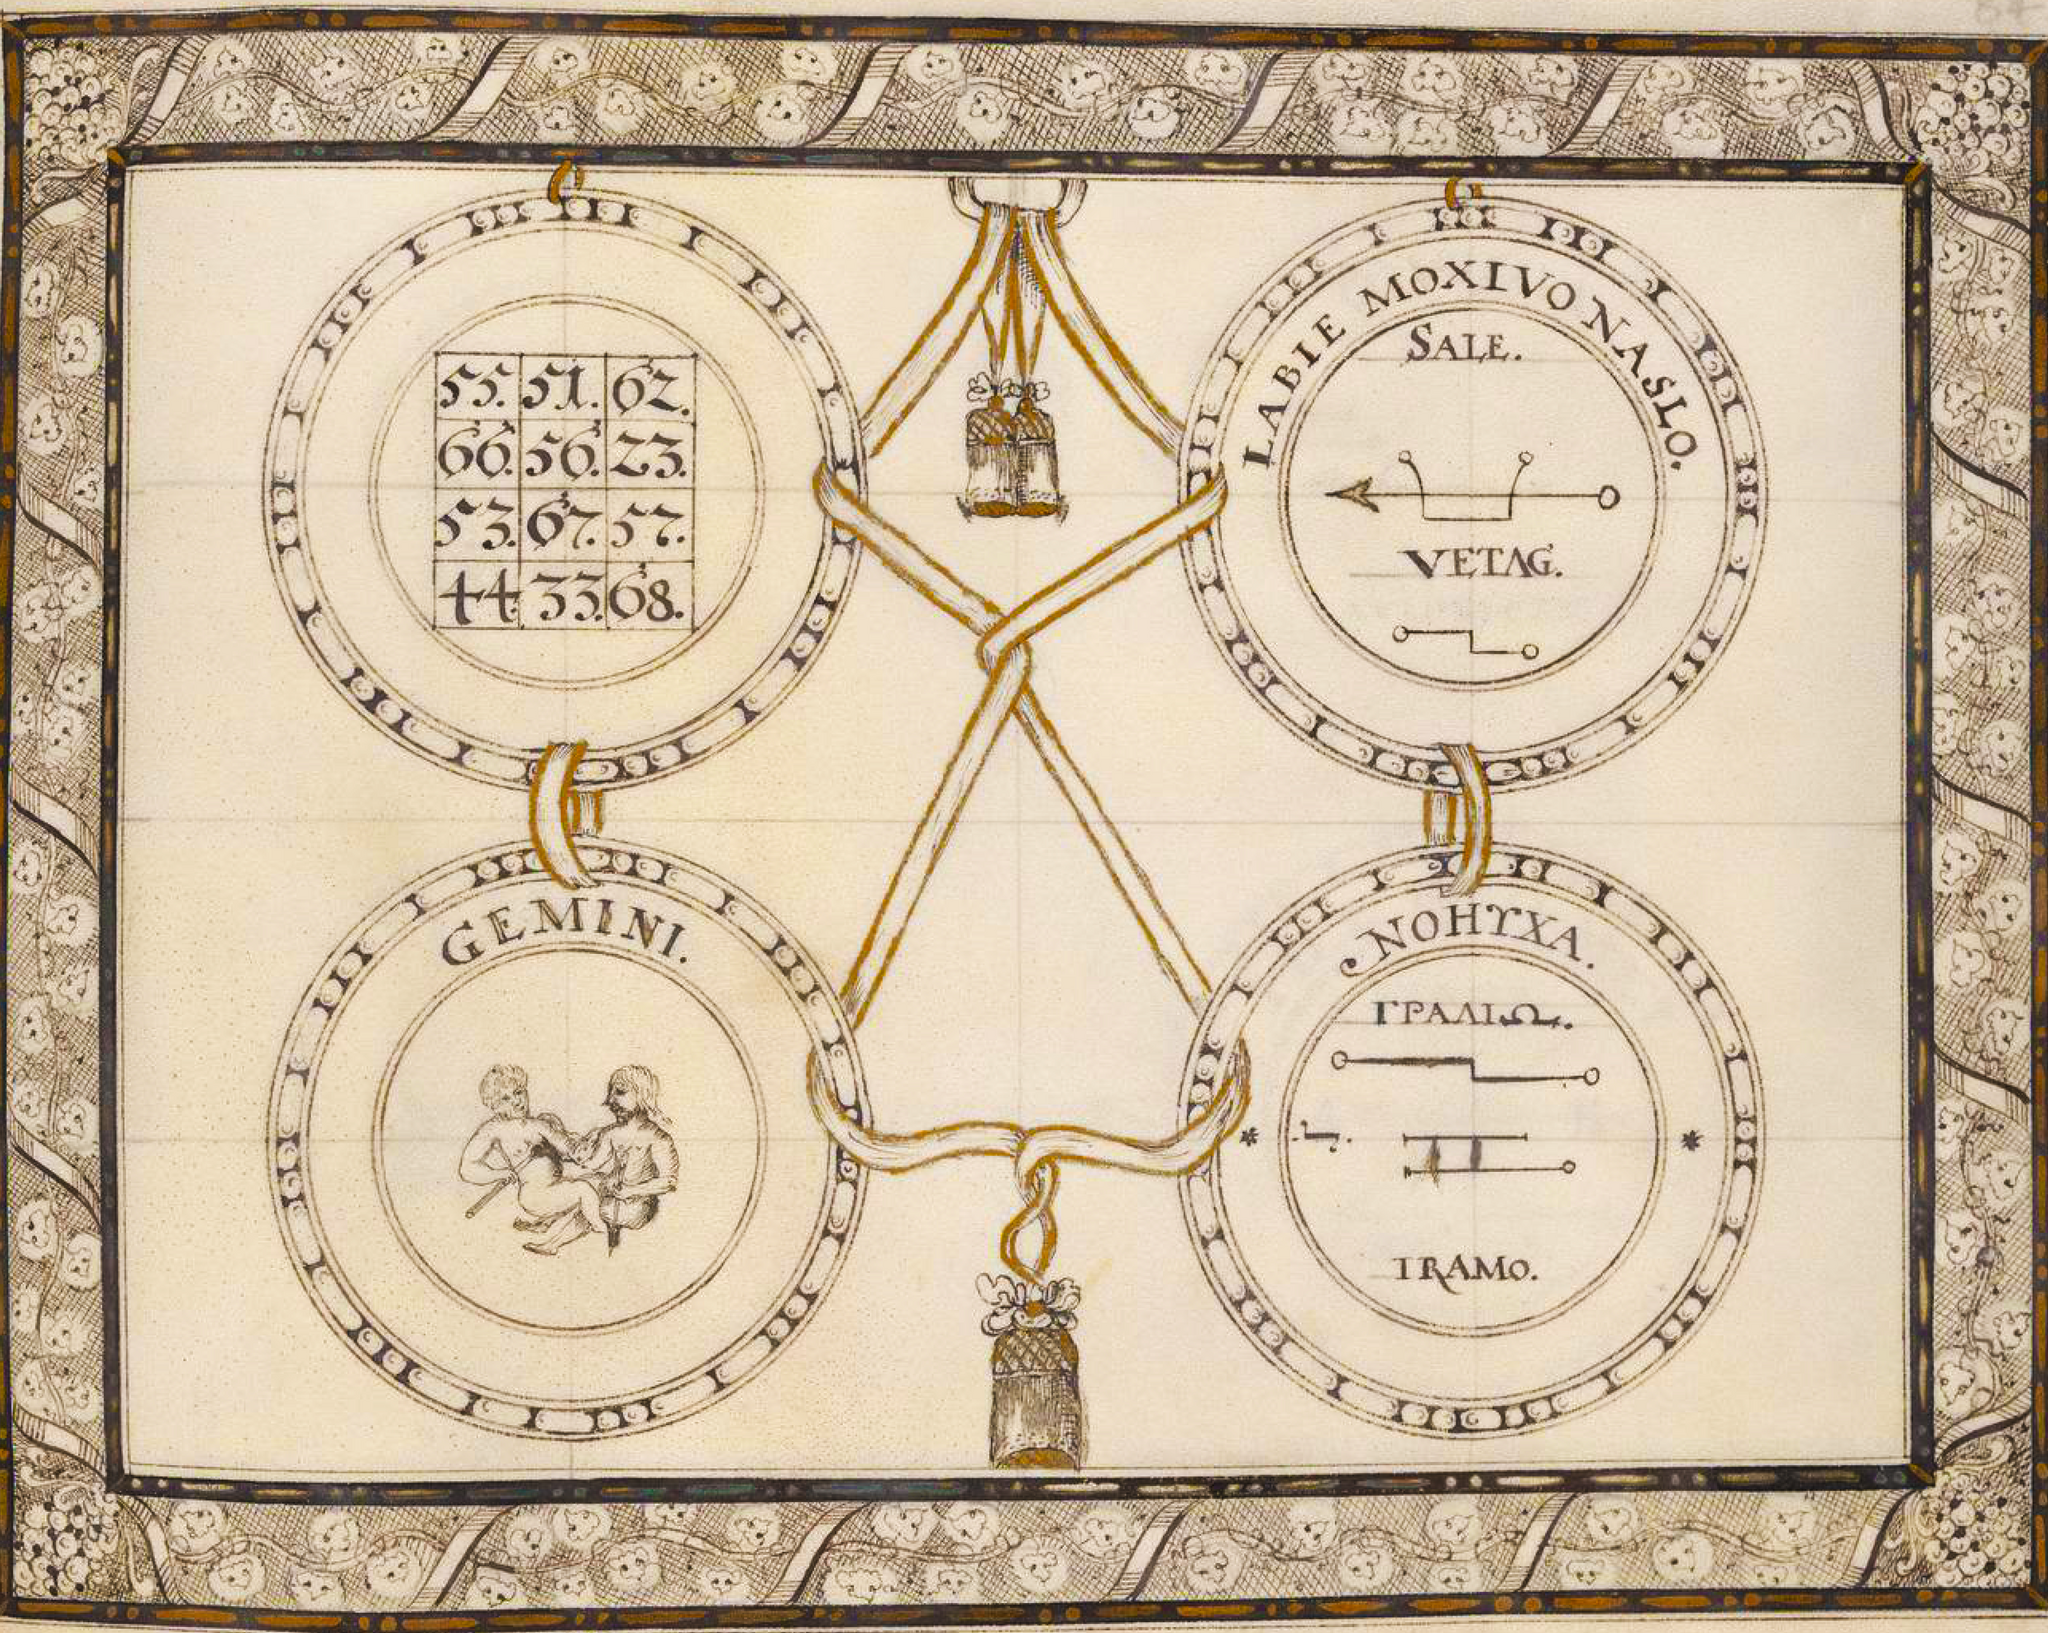 55. 51. 62.
66. 56. 23.
53. 67. 57.
44. 33. 68.
LABIE MOXIVO NASLO.
SALE.
VETAG.
GEMINI.
NOHYXA.
ΓΡΑΛΙΩ.
IRAMO.